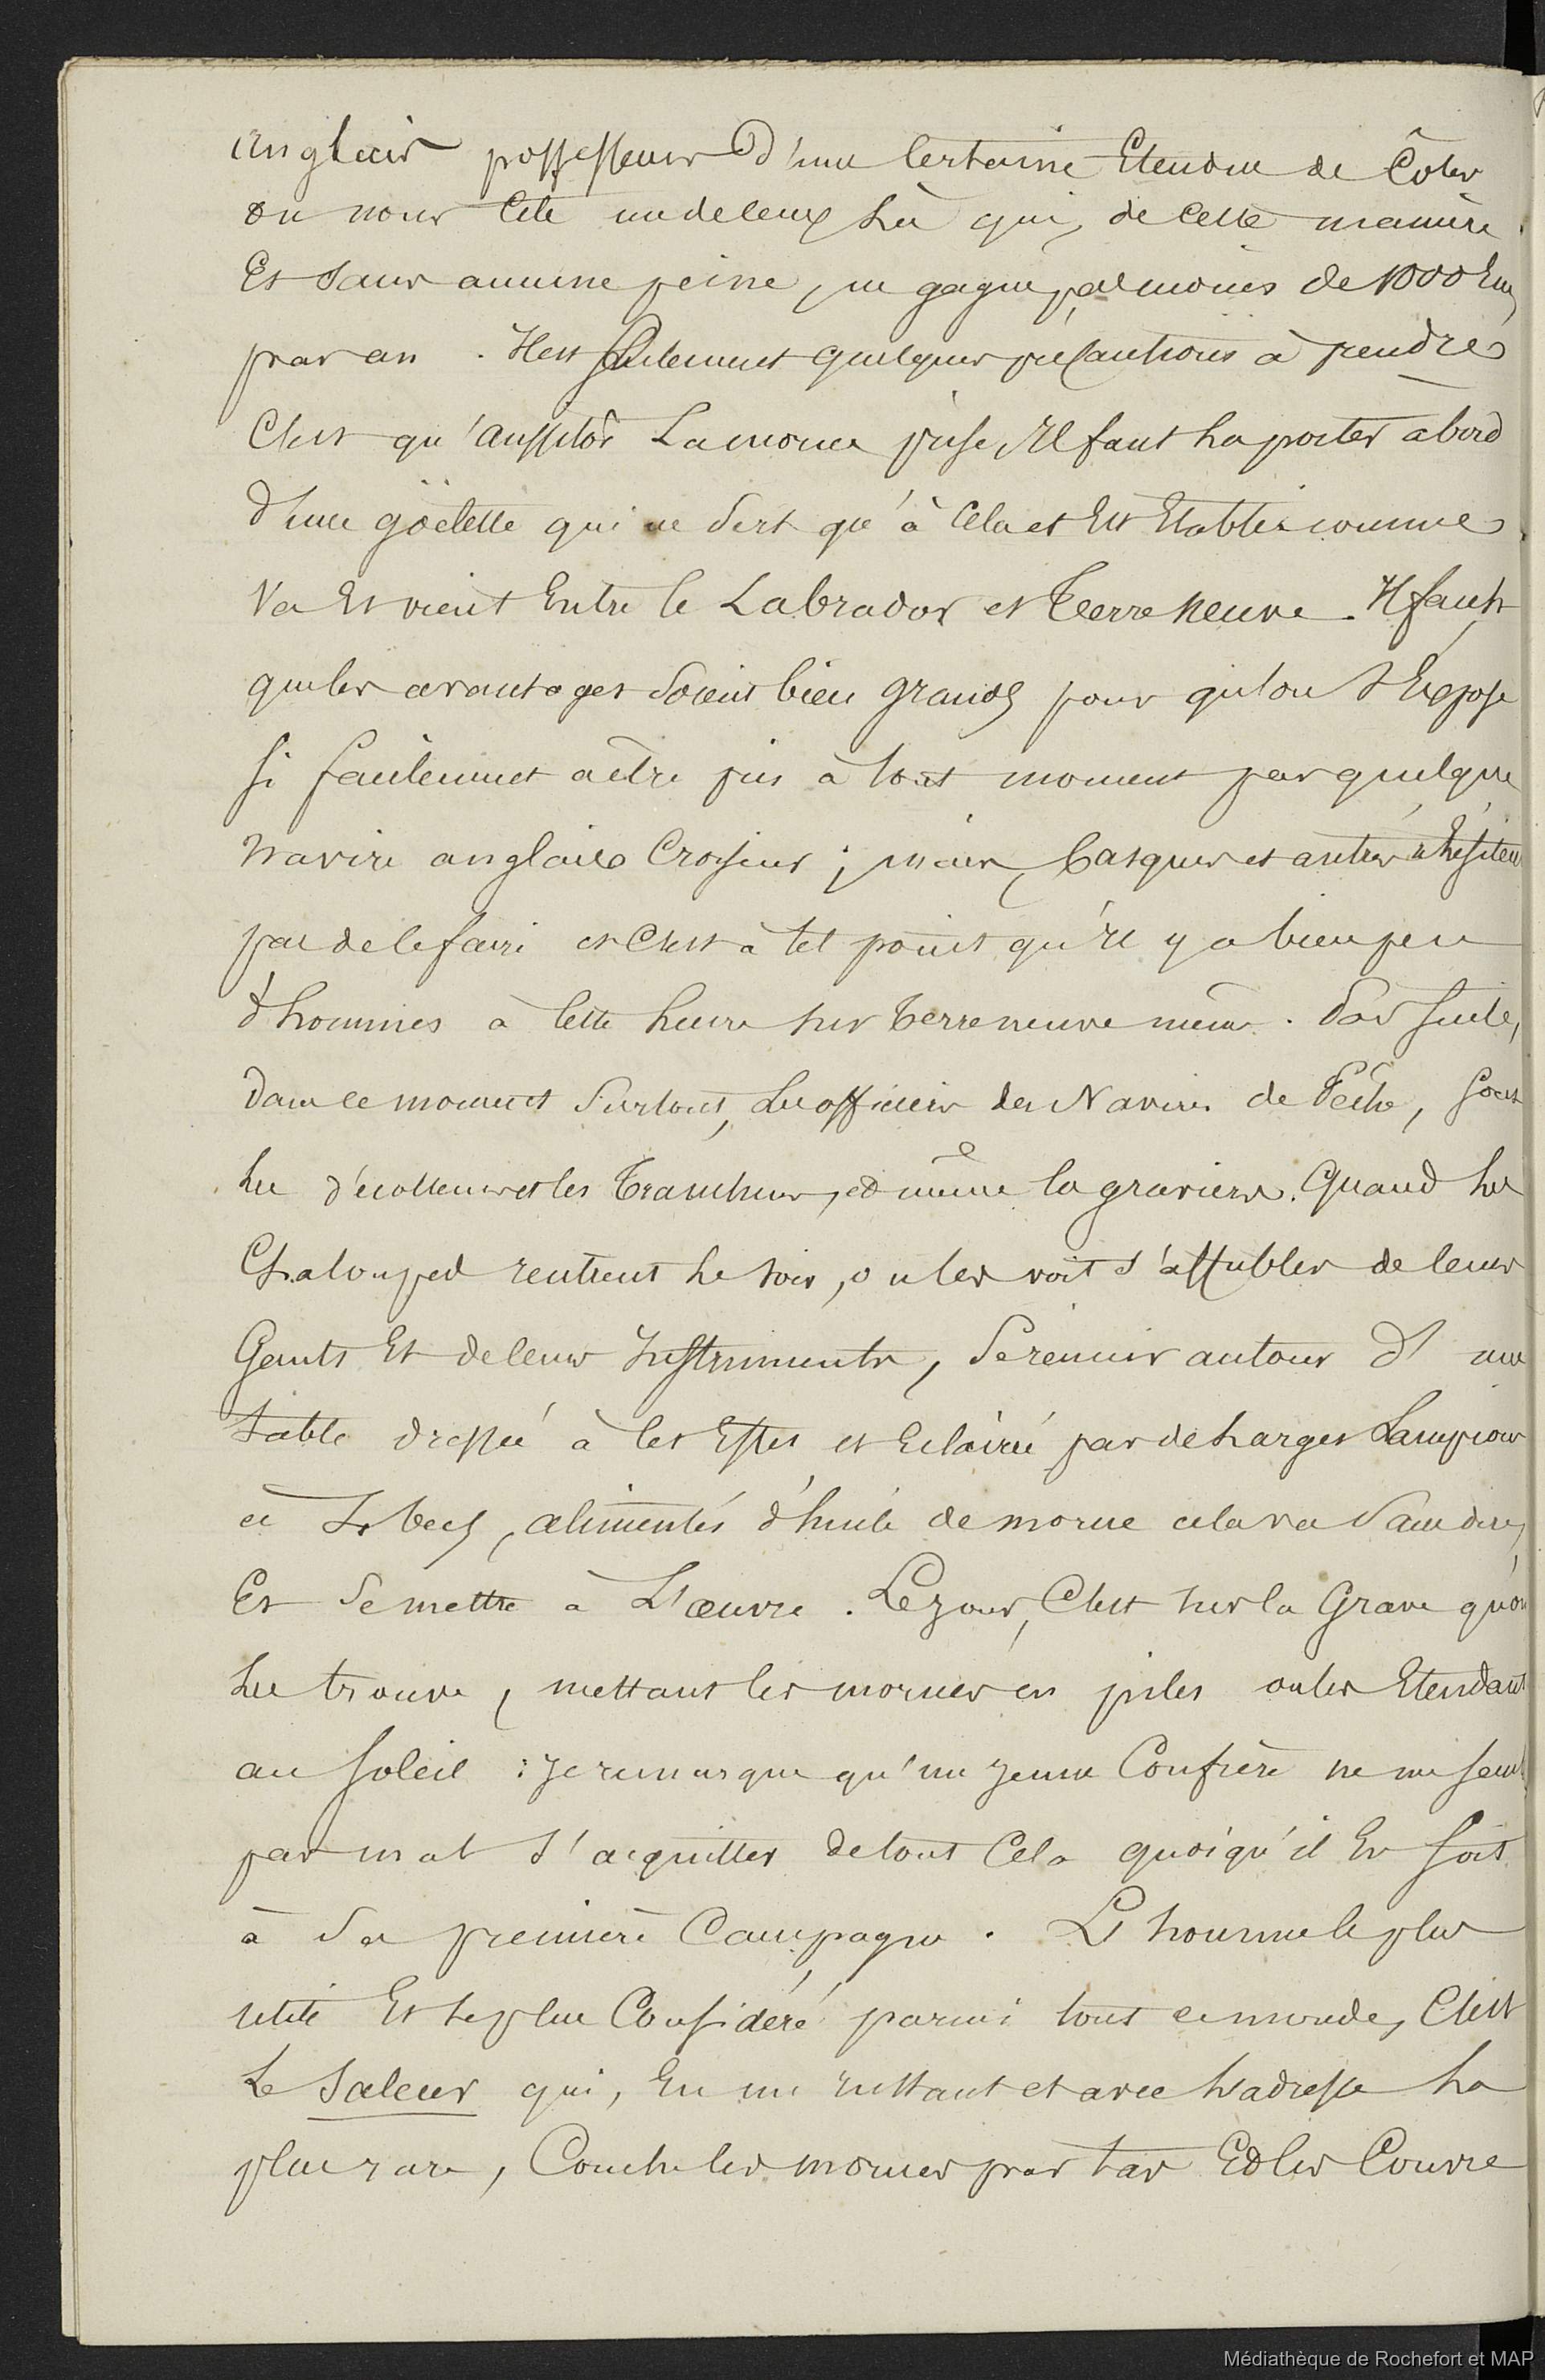 anglais possesseurs d'une certaine Etendue de Côtes
on nous Cite un de ceux là qui, de cette manière
Et sans aucune peine, ne gagne pas moins de 1000
par an. Il est seulement quelques précautions à prendre
C'est qu'aussitôt La morue prise, Il faut la porter abord
d'une goëlette qui ne sert qu'à Cela et Est Etablie comme
Va Et vient Entre le Labrador et Terre Neuve. Il faut
que les avantages soient bien grands pour qu'on s'Expose
si facilement a être pris à tout moment par quelque
Navire anglais Croiseur ; mais, basques et autres n'hésitent
pas de le faire et C'est à tel point qu'Il y a bien peu
d'hommes à cette heure sur terreneuve même. Par suite,
dans ce moment surtout, Les officiers des Navires de Pêche, sont
les décolleurs et les trancheurs, et même la graviers. Quand les
Chaloupes rentrent le soir, on les voit s'affubler de leurs
Gants Et de leurs Instruments, se reunir autour d'une
table dressée à cet Effet et Eclairée par de larges Lampions
à Is becs, alimentés d'huile de morue cela va sans dire,
Et se mettre à L'œuvre. Le jour, C'est sur la Grave qu'on
les trouve, mettant les morues en piles ou les Etendant
au soleil : Je remarque qu'un jeune Confrère ne me semble
pas mal s'acquitter de tout Cela quoiqu'il En soit
à sa première Campagne. L'homme le plus
utile Et le plus Considéré parmi tout ce monde, C'est
Le saleur qui, En un instant et avec l'adresse la
plus rare, Couche les morues par tas Et les Couvre
Médiathèque de Rochefort et MAP